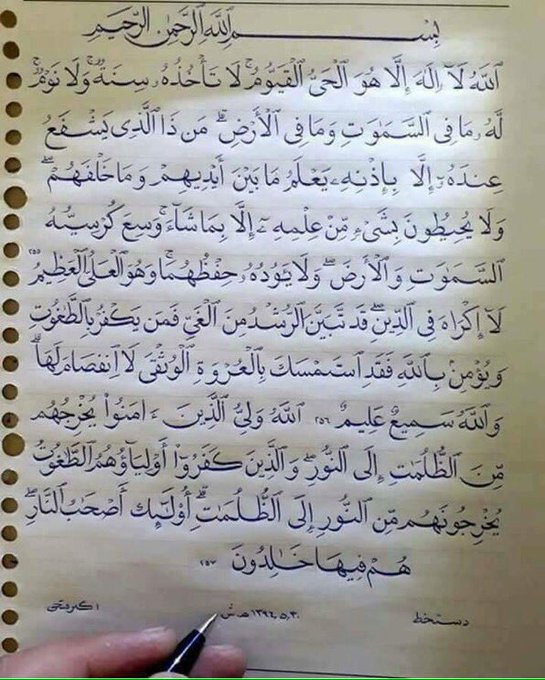 بِسْمِ ٱللَّهِ ٱلرَّحْمَٰنِ ٱلرَّحِيمِ
ٱللَّهُ لَآ إِلَٰهَ إِلَّا هُوَ ٱلْحَىُّ ٱلْقَيُّومُ ۚ لَا تَأْخُذُهُۥ سِنَةٌ وَلَا نَوْمٌ ۚ
لَّهُۥ مَا فِى ٱلسَّمَٰوَٰتِ وَمَا فِى ٱلْأَرْضِ ۗ مَن ذَا ٱلَّذِى يَشْفَعُ
عِندَهُۥٓ إِلَّا بِإِذْنِهِۦ ۚ يَعْلَمُ مَا بَيْنَ أَيْدِيهِمْ وَمَا خَلْفَهُمْ ۖ
وَلَا يُحِيطُونَ بِشَىْءٍ مِّنْ عِلْمِهِۦٓ إِلَّا بِمَا شَآءَ ۚ وَسِعَ كُرْسِيُّهُ
ٱلسَّمَٰوَٰتِ وَٱلْأَرْضَ ۖ وَلَا يَـُٔودُهُۥ حِفْظُهُمَا ۚ وَهُوَ ٱلْعَلِىُّ ٱلْعَظِيمُ ٢٥٥
لَآ إِكْرَاهَ فِى ٱلدِّينِ ۖ قَد تَّبَيَّنَ ٱلرُّشْدُ مِنَ ٱلْغَىِّ ۚ فَمَن يَكْفُرْ بِٱلطَّٰغُوتِ
وَيُؤْمِنۢ بِٱللَّهِ فَقَدِ ٱسْتَمْسَكَ بِٱلْعُرْوَةِ ٱلْوُثْقَىٰ لَا ٱنفِصَامَ لَهَا ۗ
وَٱللَّهُ سَمِيعٌ عَلِيمٌ ٢٥٦ ٱللَّهُ وَلِىُّ ٱلَّذِينَ ءَامَنُوا۟ يُخْرِجُهُم
مِّنَ ٱلظُّلُمَٰتِ إِلَى ٱلنُّورِ ۖ وَٱلَّذِينَ كَفَرُوٓا۟ أَوْلِيَآؤُهُمُ ٱلطَّٰغُوتُ
يُخْرِجُونَهُم مِّنَ ٱلنُّورِ إِلَى ٱلظُّلُمَٰتِ ۗ أُو۟لَٰٓئِكَ أَصْحَٰبُ ٱلنَّارِ ۖ
هُمْ فِيهَا خَٰلِدُونَ ٢٥٧
دستخط ١٣٩٦,٥,٣٠ ه‍.ش اکبر فتحی